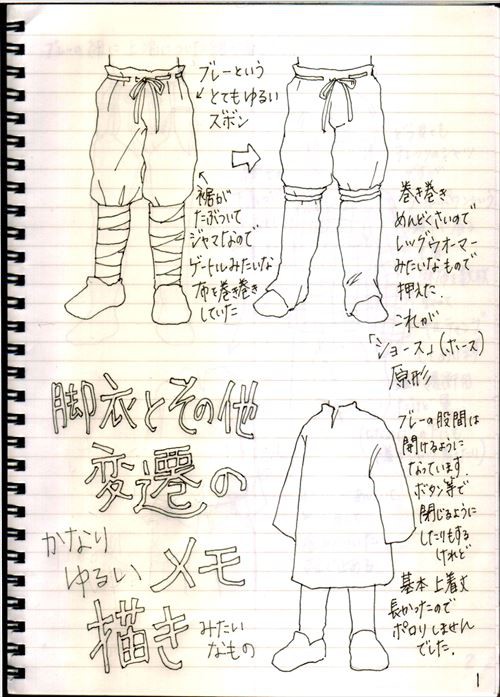 ブレーという
とてもゆるい
ズボン
裾が
たぶついて
ジャマなので
ゲートルみたいな
布を巻き巻き
していた
巻き巻き
めんどくさいので
レッグウォーマー
みたいなもので
押えた.
これが
「ショース」(ホース)
原形
脚衣とその他
変遷の
かなり
ゆるい メモ
描き みたい
なもの
ブレーの股間は
開けるように
なっています.
ボタン等で
閉じるように
したりもする
けれど
基本上着丈
長かったので
ポロリしません
でした.
1